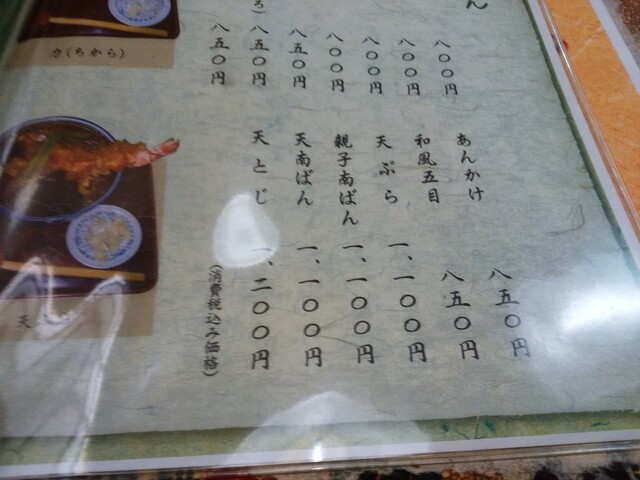 ん
八〇〇円
八〇〇円
八〇〇円
八〇〇円
八五〇円
八五〇円
八五〇円
あんかけ 八五〇円
和風五目 八五〇円
天ぷら 一、一〇〇円
親子南ばん 一、一〇〇円
天南ばん 一、一〇〇円
天とじ 一、二〇〇円
(消費税込み価格)
力(ちから)
天